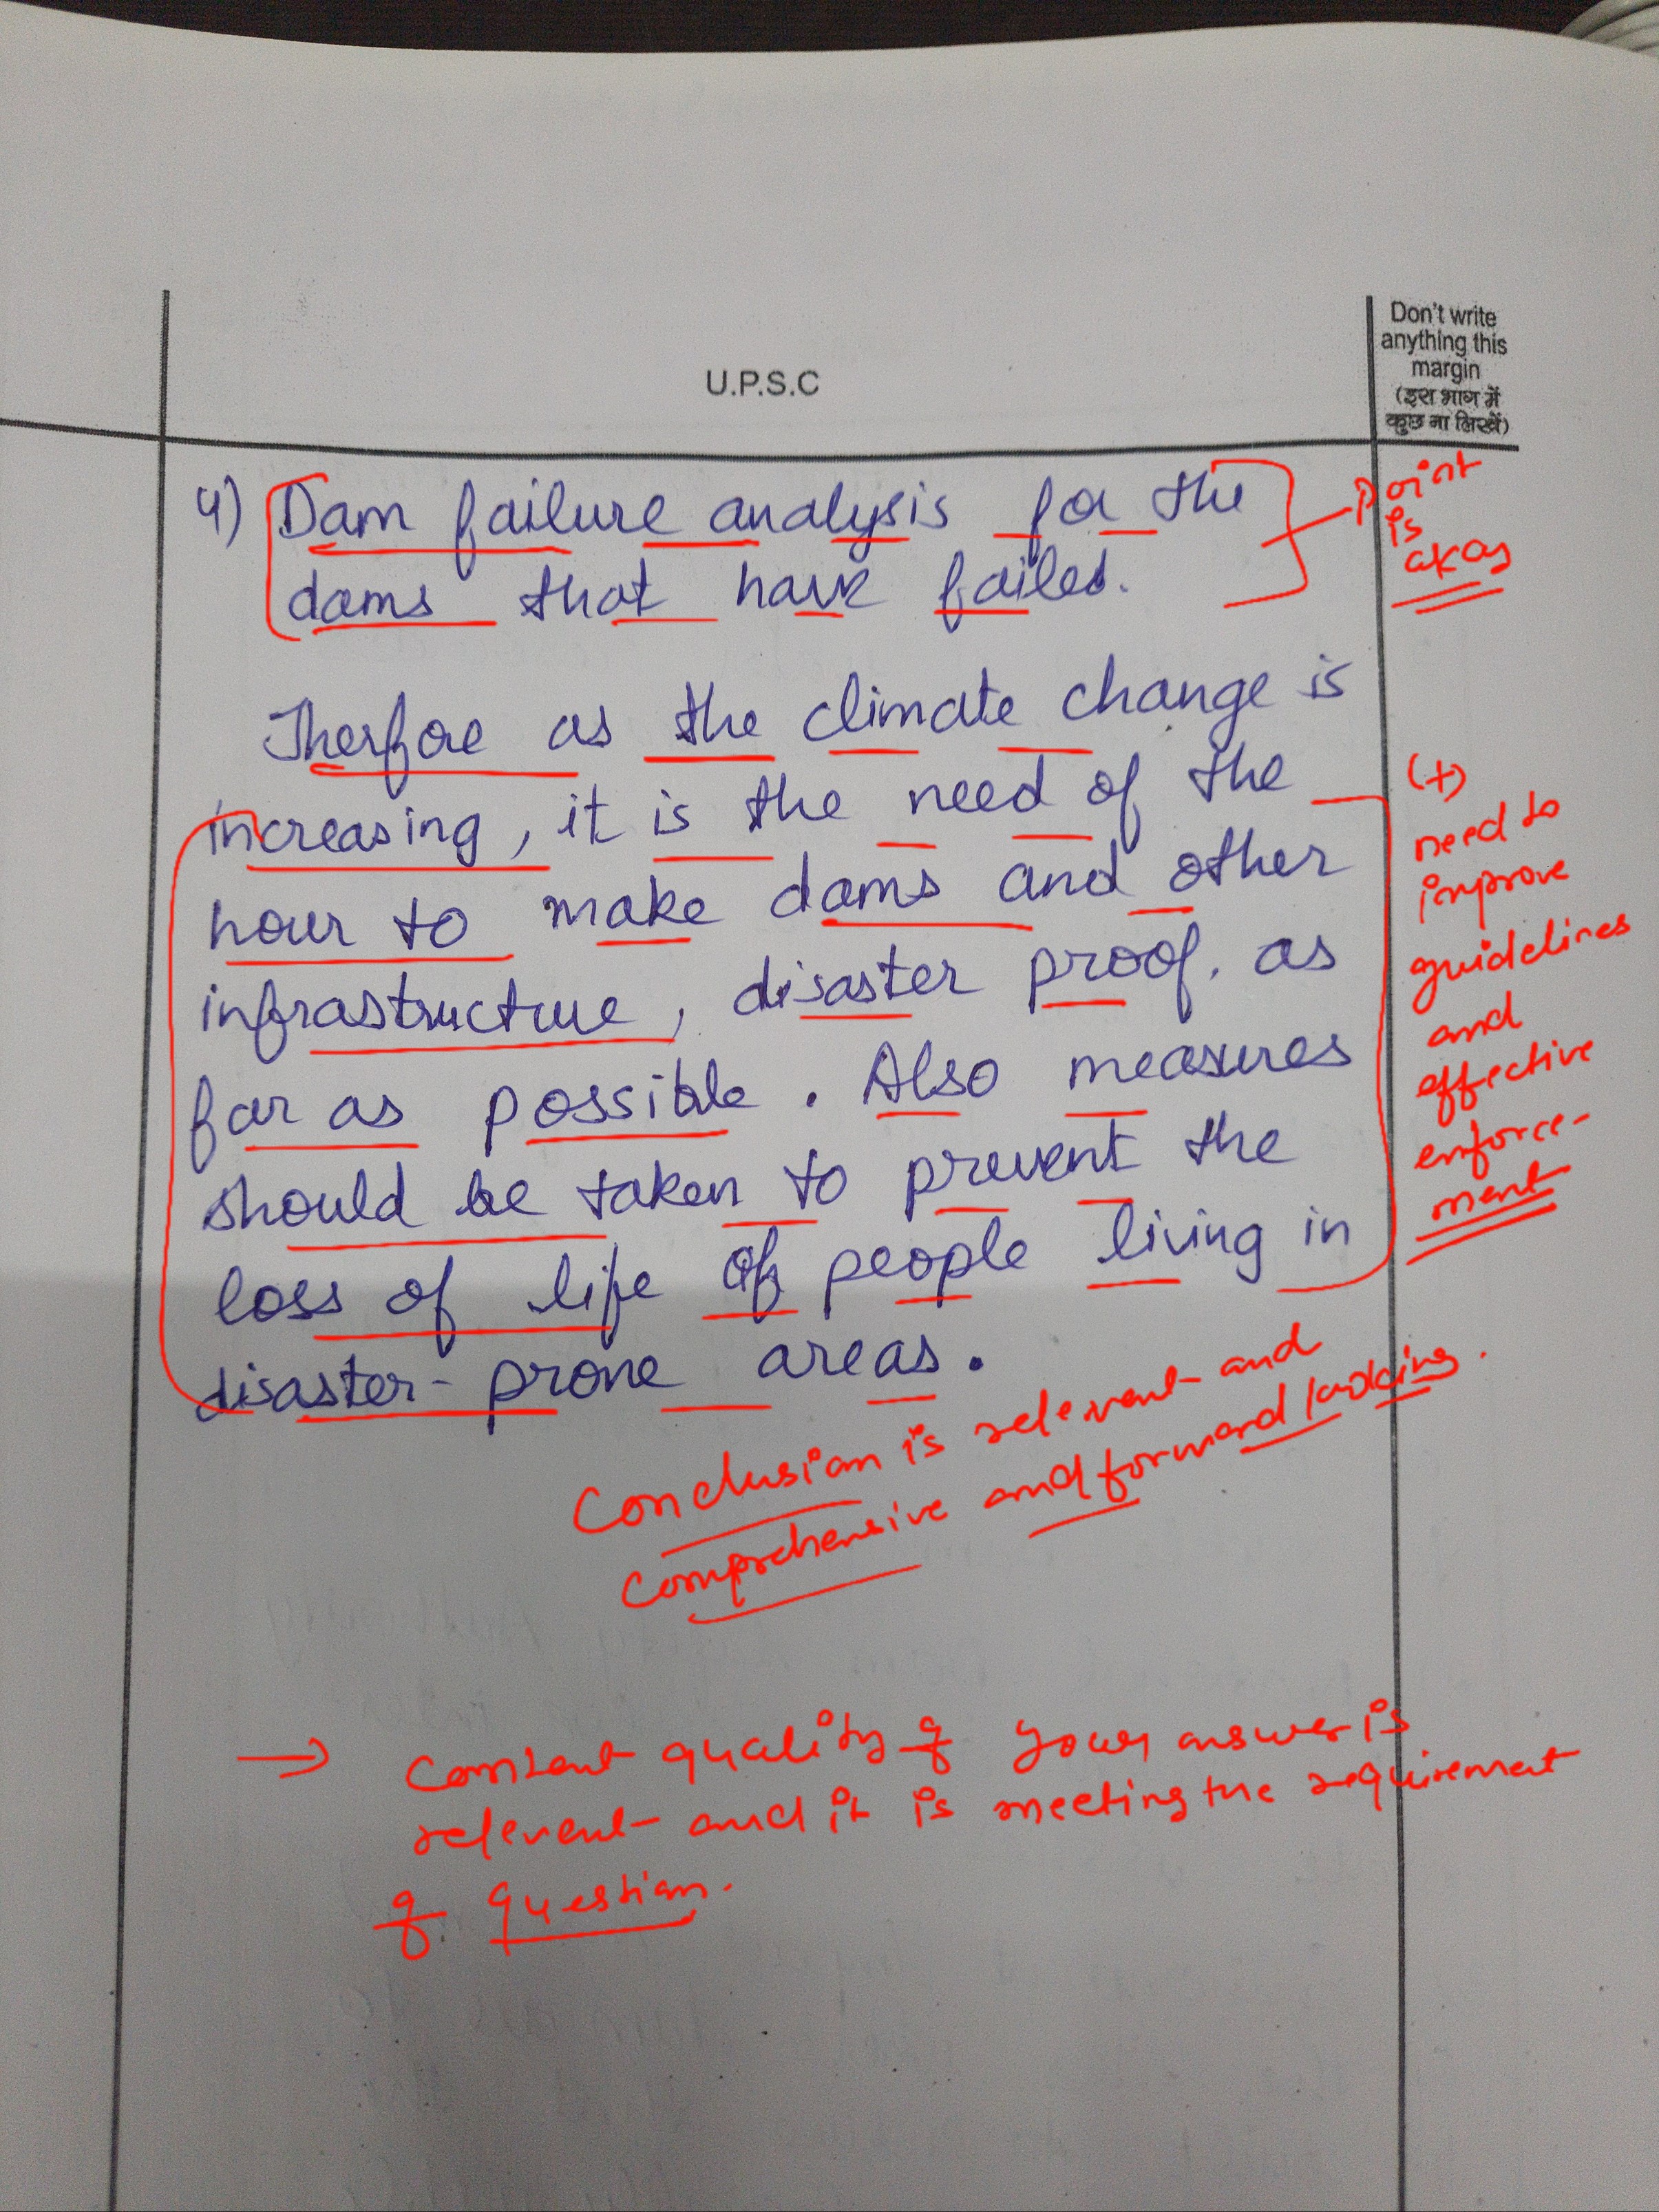 Don't write
anything this
margin
(इस भाग में
कुछ ना लिखें)
U.P.S.C
4) Dam failure analysis for the
dams that have failed.
Point
is
okay
Therfore as the climate change is
increasing, it is the need of the
hour to make dams and other
infrastructure, disaster proof, as
far as possible. Also measures
should be taken to prevent the
loss of life of people living in
disaster-prone areas.
(+)
need to
improve
guidelines
and
effective
enforce-
ment
Conclusion is relevant and
comprehensive and forward looking.
→ Content quality of your answer is
relevent and it is meeting the requirement
of question.